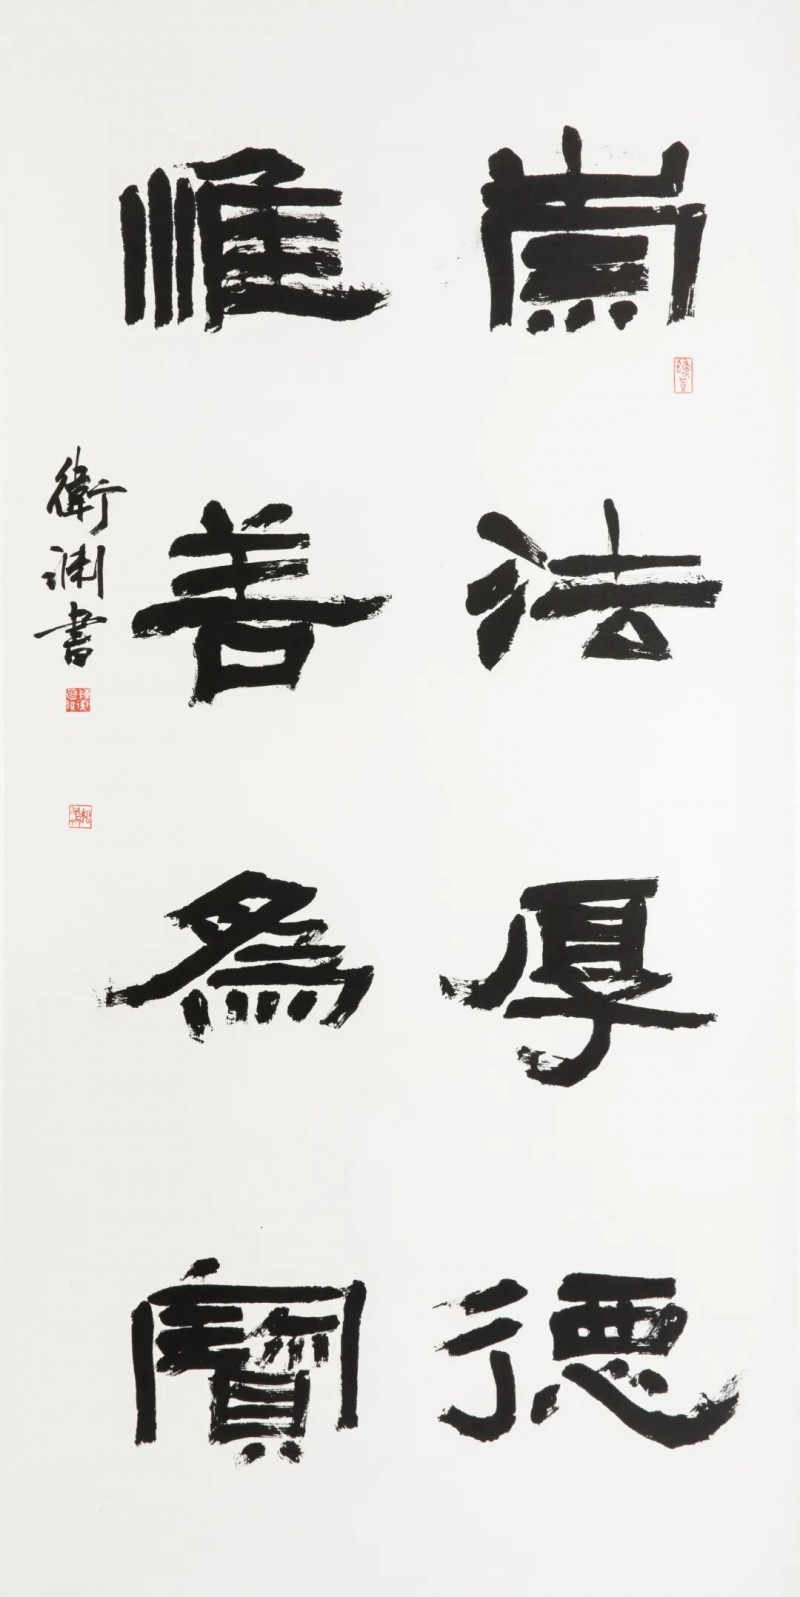 崇法厚德
惟善為寶
衛渊書